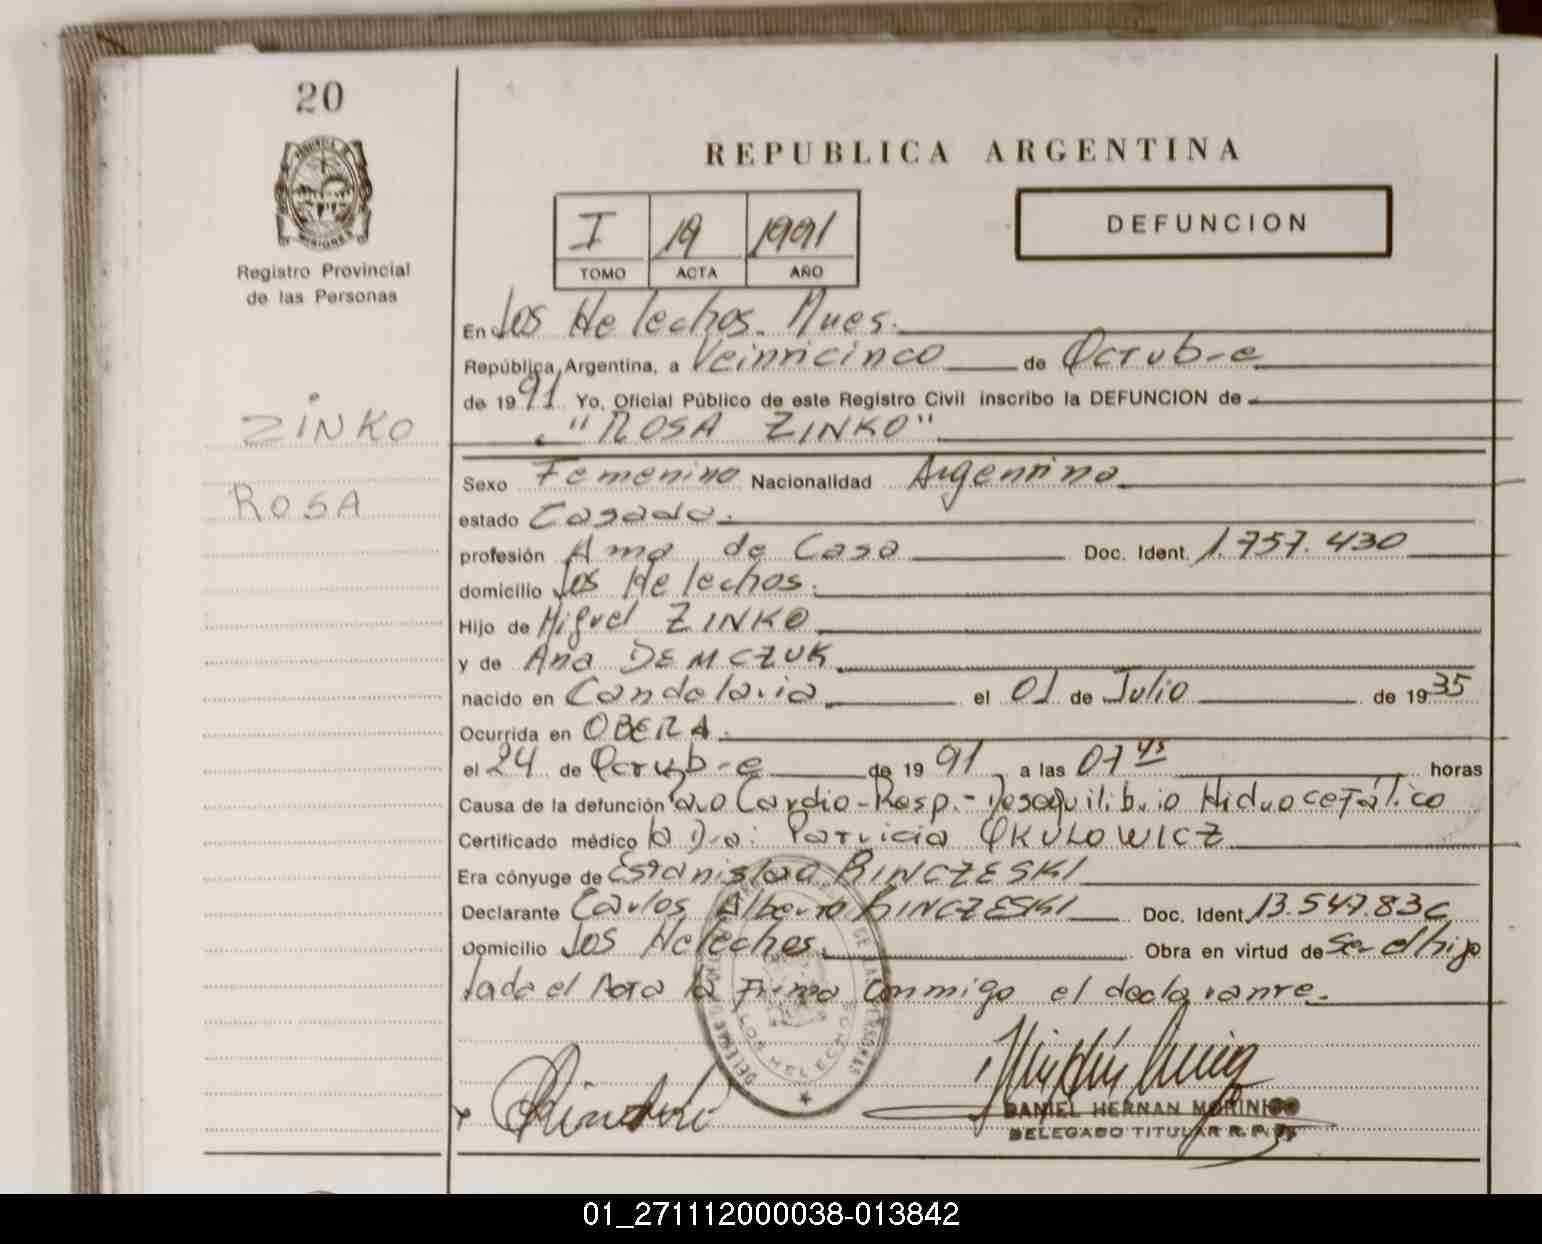 20
REPUBLICA ARGENTINA
I 19 1991
TOMO ACTA AÑO
DEFUNCION
Registro Provincial
de las Personas
En Los Helechos. Mnes.
República Argentina, a Veinticinco de Octubre
de 1991 Yo, Oficial Público de este Registro Civil inscribo la DEFUNCION de
"ROSA ZINKO"
ZINKO
ROSA
Sexo Femenino Nacionalidad Argentina
estado Casada.
profesión Ama de Casa Doc. Ident. 1.757.430
domicilio Los Helechos.
Hijo de Miguel ZINKO
y de Ana DEMCZUK
nacido en Candelaria el 01 de Julio de 1935
Ocurrida en OBERA.
el 24 de Octubre de 1991 a las 07 45 horas
Causa de la defunción Paro Cardio-Resp.- Desequilibrio Hidrocefálico
Certificado médico la Dra: Patricia OKULOWICZ
Era cónyuge de Estanislao BINCZESKI
Declarante Carlos Alberto BINCZESKI Doc. Ident. 13.547.836
Domicilio Los Helechos. Obra en virtud de Ser el hijo
Leida el Acta la Firma Conmigo el declarante.
LOS HELECHOS
DANIEL HERNAN MORINIGO
DELEGADO TITULAR R.P.P.
01_271112000038-013842